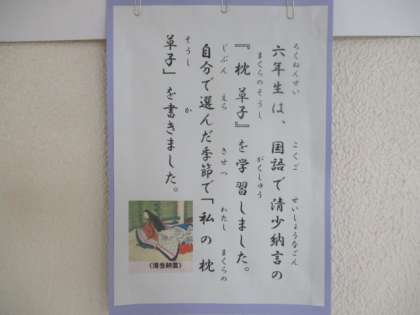 六年生は、国語で清少納言の
ろくねんせい こくご せいしょうなごん
『枕草子』を学習しました。
まくらのそうし がくしゅう
自分で選んだ季節で「私の枕
じぶん えら きせつ わたし まくらの
草子」を書きました。
そうし か
(清少納言)